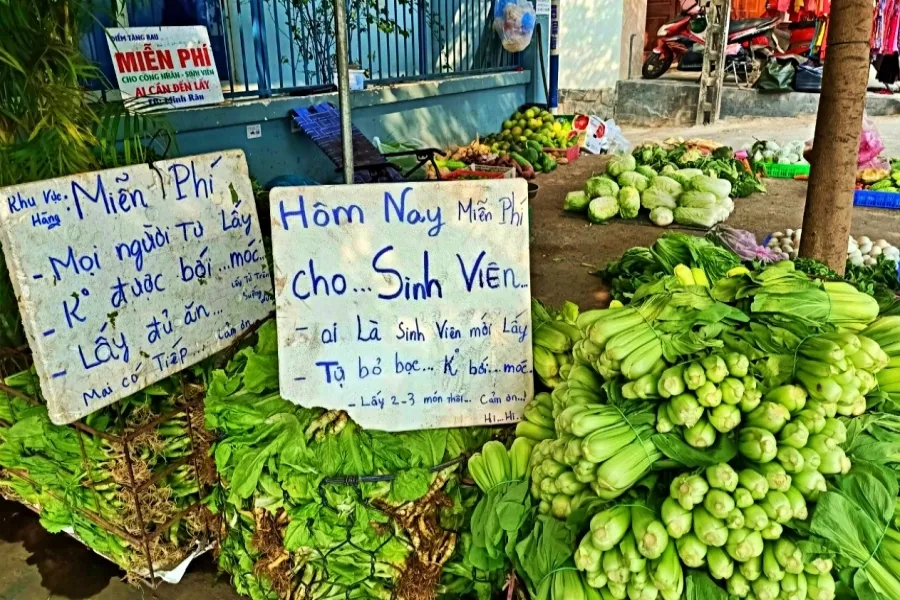 ĐIỂM TẶNG RAU
MIỄN PHÍ
CHO CÔNG NHÂN - SINH VIÊN
AI CẦN ĐẾN LẤY
Khu Vực Miễn Phí
Hàng
- Mọi người Tự Lấy
- K° được bới ... móc.
Lấy Từ Trên
- Lấy đủ ăn...
Mai có Tiếp... Cảm ơn
Hôm Nay Miễn Phí
cho... Sinh Viên...
- ai Là Sinh Viên mới Lấy
- Tự bỏ bọc... K° bới... móc
- Lấy 2-3 món thôi... Cảm ơn..!
Hi...Hi...